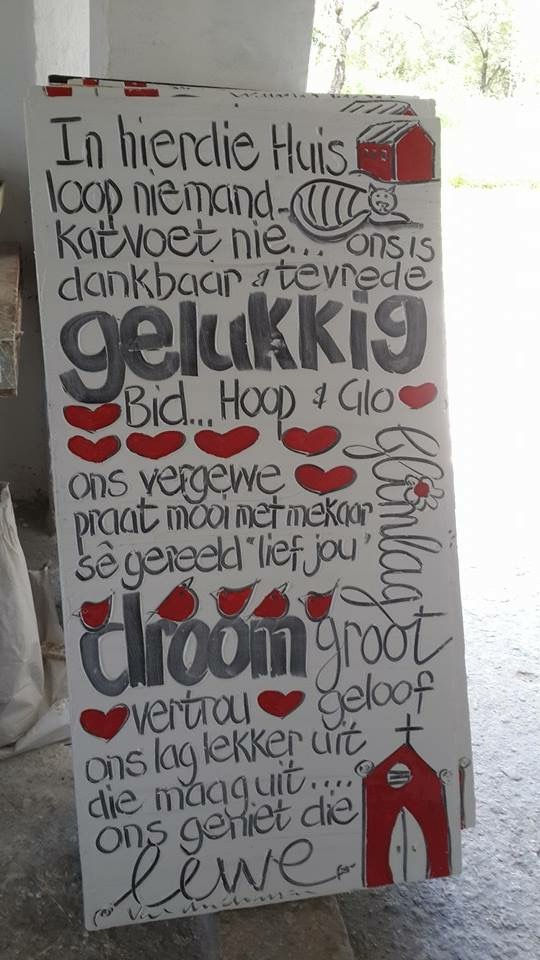 In hierdie Huis
loop niemand
katvoet nie... ons is
dankbaar & tevrede
gelukkig
Bid... Hoop & Glo
ons vergewe
praat mooi met mekaar
sê gereeld "lief jou"
glimlag
droom groot
vertrou geloof
ons lag lekker uit
die maag uit....
ons geniet die
lewe